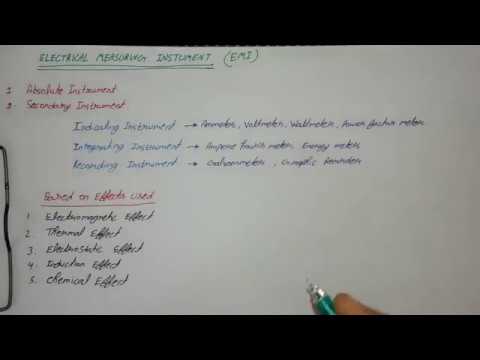 ELECTRICAL MEASURING INSTUMENT (EMI)
1 Absolute Instrument
2. Secondary Instrument
Indicating Instrument → Ammeters, Voltmeters, Wattmeters, Power factor meters
Integrating Instrument → Ampere meters, Energy meters
Recording Instrument → Recorders
Based on Effects Used
1. Electromagnetic Effect
2. Thermal Effect
3. Electrostatic Effect
4. Induction Effect
5. Chemical Effect